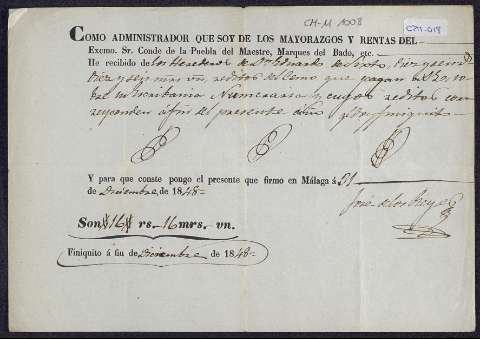 CH-M 1008
C711-018
COMO ADMINISTRADOR QUE SOY DE LOS MAYORAZGOS Y RENTAS DEL
Excmo. Sr. Conde de la Puebla del Maestre, Marques del Bado, etc.
He recibido de los Herederos de Dn Eduardo de
Diez y seis mrs vn, reditos del censo que pagan á S.E. 
Escribania Numeraria y cuyos reditos corresponden
á fin del presente año y doy finiquito
Y para que conste pongo el presente que firmo en Málaga á 31
de Diciembre, de 1848
José de los Reyes
Son $16$ rs. 16 mrs. vn.
Finiquito á fin de Diciembre de 1848